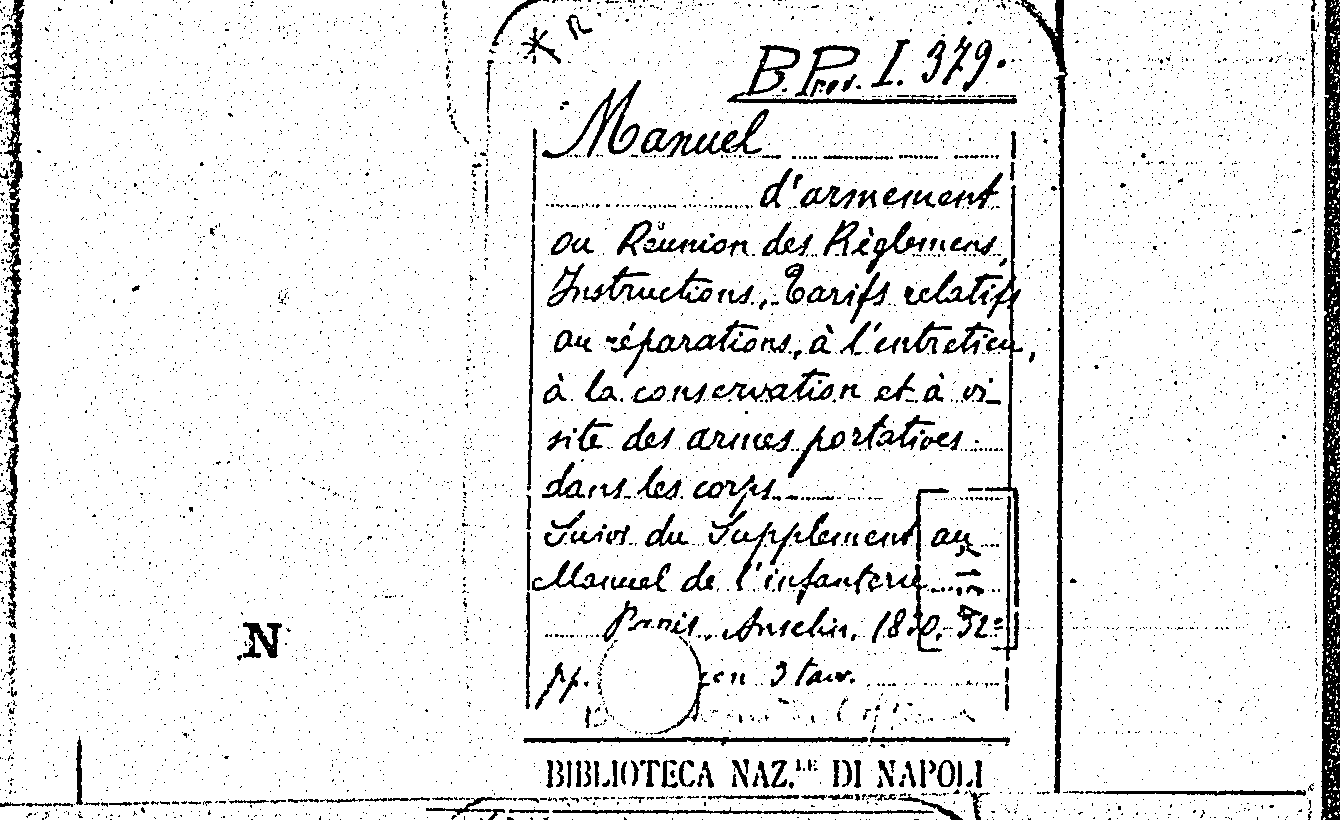 * R
B. Prov. I. 379.
Manuel
d'armement
ou Réunion des Règlemens,
Instructions, Tarifs relatifs
au réparations, à l'entretien,
à la conservation et à vi-
site des armes portatives
dans les corps
Suivi du Supplement au
Manuel de l'infanterie
Paris. Anselin. 18
pp. con 3 tav.
N
BIBLIOTECA NAZ.LE DI NAPOLI